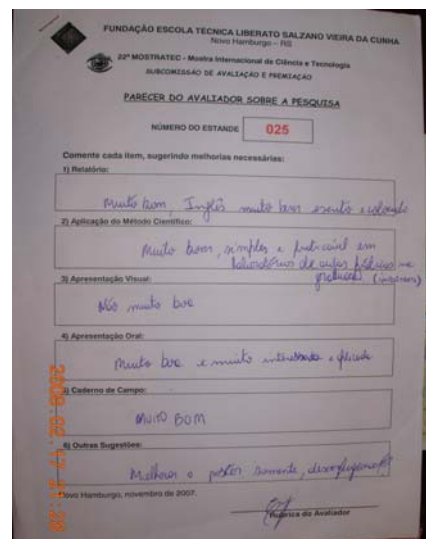 FUNDAÇÃO ESCOLA TÉCNICA LIBERATO SALZANO VIEIRA DA CUNHA
Novo Hamburgo – RS
22ª MOSTRATEC - Mostra Internacional de Ciência e Tecnologia
SUBCOMISSÃO DE AVALIAÇÃO E PREMIAÇÃO
PARECER DO AVALIADOR SOBRE A PESQUISA
NÚMERO DO ESTANDE 025
Comente cada item, sugerindo melhorias necessárias:
1) Relatório:
Muito bom, Inglês muito bem escrito e
2) Aplicação do Método Científico:
Muito bom, simples e em
laboratórios de aulas na
3) Apresentação Visual:
Não muito boa
4) Apresentação Oral:
Muito boa e muito interessada e
5) Caderno de Campo:
MUITO BOM
6) Outras Sugestões:
Melhorar o poster somente,
Novo Hamburgo, novembro de 2007.
Rubrica do Avaliador